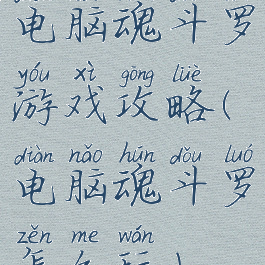 电脑魂斗罗
yóu xì gōng lüè
游戏攻略(
diàn nǎo hún dǒu luó
电脑魂斗罗
zěn me wán